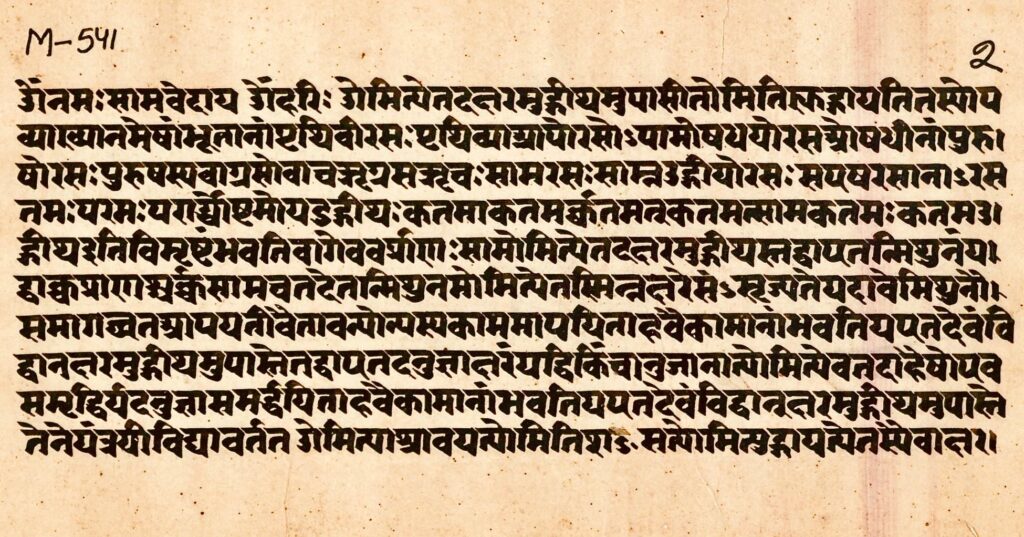 M-541
2
ॐनमःसामवेदाय ॐहरिः ओमित्येतदक्षरमुद्गीथमुपासीतोमितिह्युद्गायतितस्योप
व्याख्यानमेषांभूतानांपृथिवीरसःपृथिव्याआपोरसोऽपामोषधयोरसओषधीनांपुरु।
षोरसःपुरुषस्यवाग्रसोवाचऋग्रसऋचःसामरसःसाम्नउद्गीथोरसःसएषरसानाऽरस
तमःपरमःपरार्द्ध्योष्टमोयउद्गीथःकतमाकतमर्क्कतमत्कतमत्सामकतमःकतमउ।
द्गीथइतिविमृष्टंभवतिवागेवर्क्प्राणःसामोमित्येतदक्षरमुद्गीथस्तद्वाएतन्मिथुनंय।
द्वाक्चप्राणश्चर्क्चसामचतदेतन्मिथुनमोमित्येतस्मिन्नक्षरेसंऽसृज्यतेयदावैमिथुनौ।
समागच्छतआपयतोवैतावन्योन्यस्यकाममापयिताहवैकामानांभवतियएतदेवंवि
द्वानक्षरमुद्गीथमुपास्तेतद्वाएतदनुज्ञाक्षरंयद्धिकिंचानुजानात्योमित्येवतदाहैषोएव
समृद्धिर्यदनुज्ञासमर्द्धयिताहवैकामानांभवतियएतदेवंविद्वानक्षरमुद्गीथमुपास्ते
तेनेयंत्रयीविद्यावर्तत ओमित्याश्रावयत्योमितिशाऽसत्योमित्युद्गायत्येतस्यैवाक्षर।